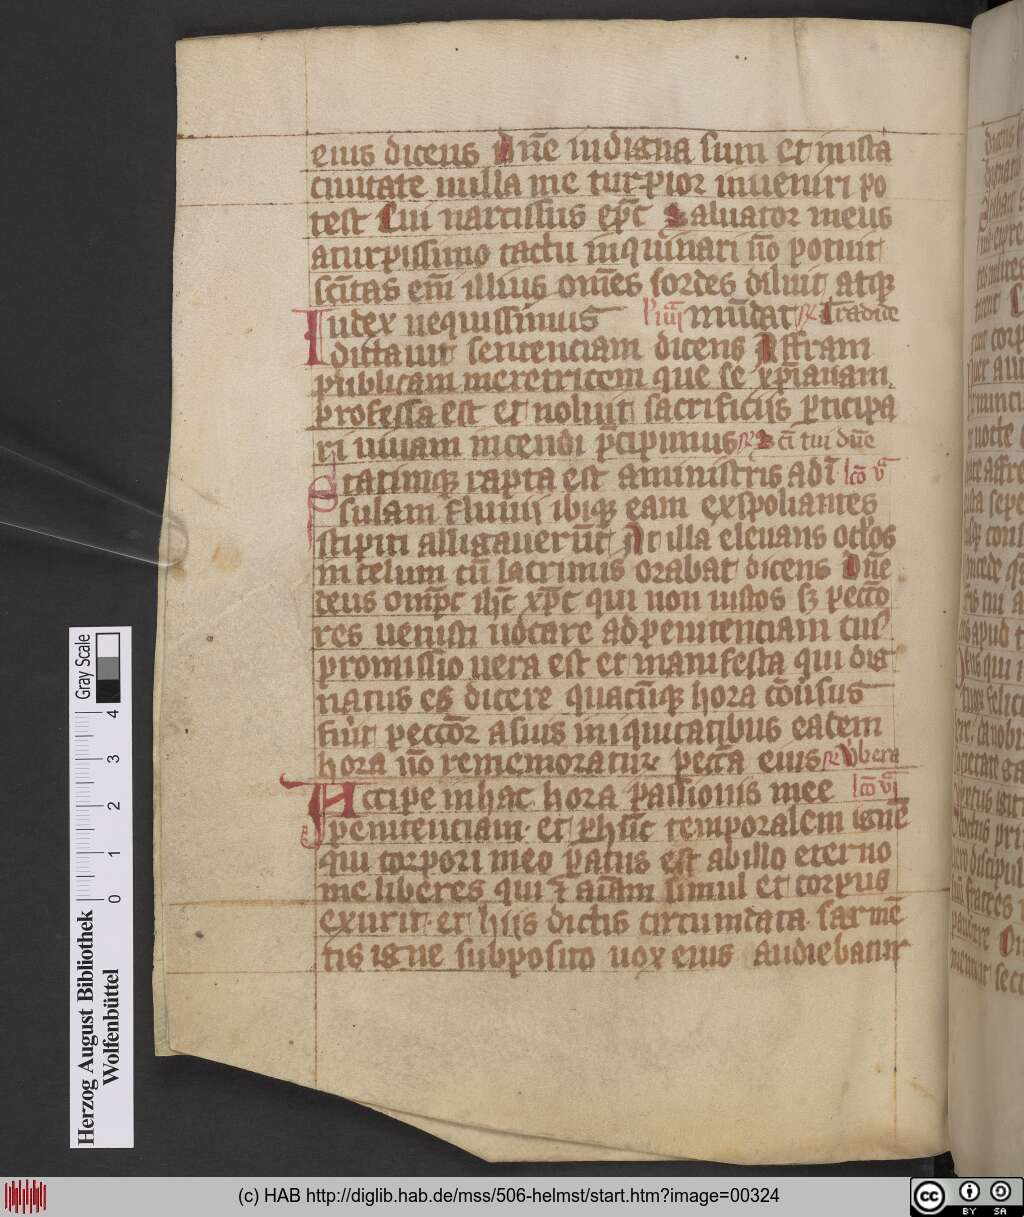 eius dicens Dn̄e indigna sum et in ista
ciuitate nulla me turpior inueniri po
test Cui narcissus ep̄c Saluator meus
a turpissimo tactu inquinari n̄o potuit
sc̄itas em̄ illius om̄es sordes diluit atq̨
mūdat Tradide
Iudex nequissimus
dictauit sentenciam dicens Affram
publicam meretricem que se xp̄ianam
professa est et noluit sacrificiis p̄ticipa
ri uiuam incendi p̄cipimus Sc̄i tui dn̄e
Statimq̨ rapta est a ministris ad ī lc̄o v̄
sulam fluuii ibiq̨ eam exspoliantes
stipiti alligauer̄ut At illa eleuans oc̄los
in celum cū lacrimis orabat dicens Dn̄e
deus om̄pc ih̄c xp̄c qui non iustos sʒ pecc̄o
res uenisti uocare ad penitenciam cui̾
promissio uera est et manifesta qui dig
natus es dicere quacūq̨ hora cōuersus
fūit pecc̄or a suis iniquitatibus eadem
hora n̄o rememoratur pecc̄a eius Libera
Accipe in hac hora passionis mee lc̄o v̄i
penitenciam et p̄ h̄uc temporalem ignē
qui corpori meo paratus est ab illo eterno
me liberes qui et aīam simul et corpus
exurit et hiis dictis circumdata sarmē
tis igne subposito uox eius audiebatur
Herzog August Bibliothek
Wolfenbüttel
0 1 2 3 4
Gray Scale
(c) HAB http://diglib.hab.de/mss/506-helmst/start.htm?image=00324
cc BY SA